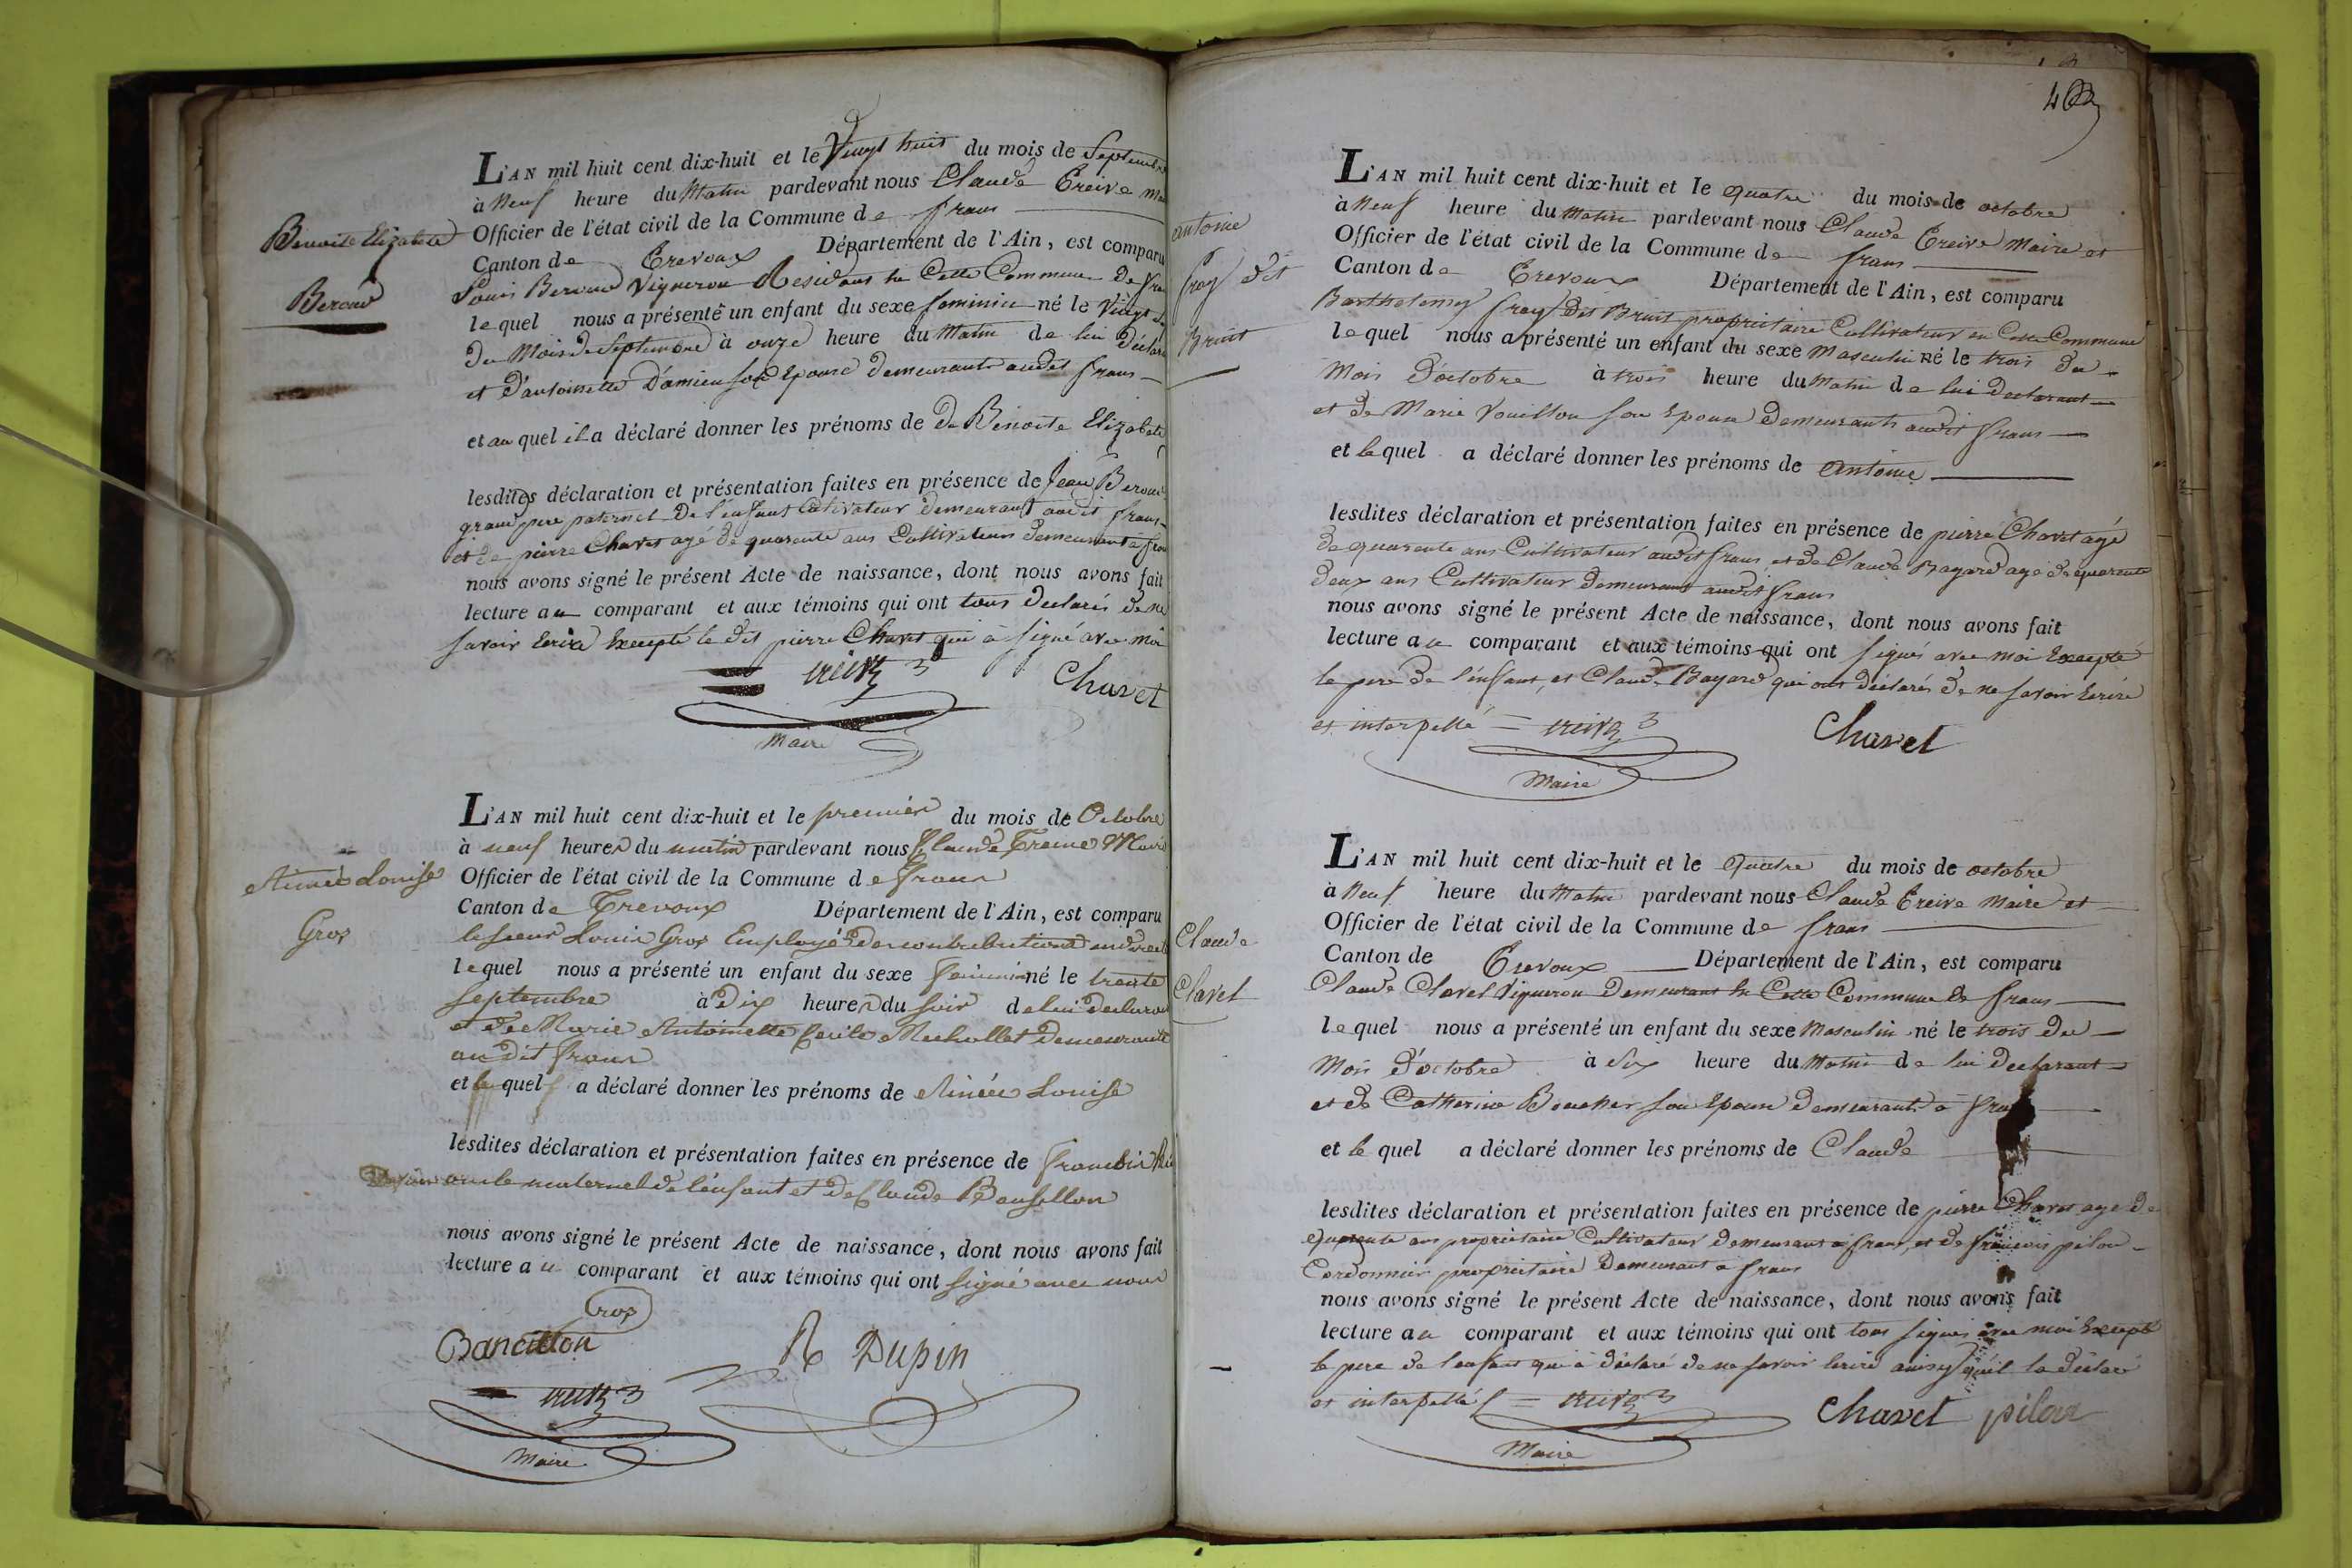 Benoite Elizabeth
Beroud
L'AN mil huit cent dix-huit et le Vingt huit du mois de Septembre
à Neuf heure du Matin pardevant nous Claude Treive
Officier de l'état civil de la Commune de frans
Canton de Trevoux Département de l'Ain, est comparu
Louis Beroud Vigneron Residant en Cette Commune de
lequel nous a présenté un enfant du sexe feminin né le Vingt
du Mois de Septembre à onze heure du Matin de lui
et d'antoinette Damien son Epouse demeurants audit frans
et au quel il a déclaré donner les prénoms de De Benoite Elizabeth
lesdites déclaration et présentation faites en présence de Jean Beroud
grand pere paternel De l'enfant Cultivateur demeurant audit frans
et de pierre Chavet agé de quarente ans Cultivateur demeurant a
nous avons signé le présent Acte de naissance, dont nous avons fait
lecture au comparant et aux témoins qui ont tous declarés de ne
savoir Ecrire Excepté le dit pierre Chavet qui à signé avec moi
treive
Chavet
Maire
Aimée Louise
Gros
L'AN mil huit cent dix-huit et le premier du mois de Octobre
à neuf heures du matin pardevant nous Claude Treive Maire
Officier de l'état civil de la Commune de frans
Canton de Trevoux Département de l'Ain, est comparu
le sieur Louis Gros Employé des contributions
lequel nous a présenté un enfant du sexe feminin né le trente
septembre à dix heures du soir de lui
et de Marie Antoinette Cecile demeurante
au dit frans
et quel a déclaré donner les prénoms de Aimée Louise
lesdites déclaration et présentation faites en présence de
oncle maternel de l'enfant et de Claude
nous avons signé le présent Acte de naissance, dont nous avons fait
lecture au comparant et aux témoins qui ont signé avec nous
Gros
R Dupin
treive
Maire
antoine
fray dit
Bruit
L'AN mil huit cent dix-huit et le quatre du mois de octobre
à Neuf heure du Matin pardevant nous Claude Treive Maire et
Officier de l'état civil de la Commune de frans
Canton de Trevoux Département de l'Ain, est comparu
Barthelemy fray dit Bruit propriétaire Cultivateur en Cette Commune
lequel nous a présenté un enfant du sexe Masculin né le trois du
Mois d'octobre à trois heure du Matin de lui declarant
et de Marie Vouillon son Epouse demeurants audit frans
et le quel a déclaré donner les prénoms de antoine
lesdites déclaration et présentation faites en présence de pierre Chavet agé
de quarente ans Cultivateur audit frans, et de Claude Bayard agé de quarente
deux ans Cultivateur demeurant audit frans
nous avons signé le présent Acte de naissance, dont nous avons fait
lecture au comparant et aux témoins qui ont signés avec moi Excepté
le pere de l'enfant, et Claude Bayard qui ont déclarés de ne savoir Ecrire
et interpellé treive
Chavet
Maire
Claude
Clavel
L'AN mil huit cent dix-huit et le Quatre du mois de octobre
à Neuf heure du Matin pardevant nous Claude Treive Maire et
Officier de l'état civil de la Commune de frans
Canton de Trevoux Département de l'Ain, est comparu
Claude Clavel Vigneron demeurant en Cette Commune de frans
lequel nous a présenté un enfant du sexe Masculin né le trois du
Mois d'octobre à Six heure du Matin de lui declarant
et de Catherine Boucher son Epouse demeurants a
et le quel a déclaré donner les prénoms de Claude
lesdites déclaration et présentation faites en présence de pierre Chavet agé de
quarente ans propriétaire Cultivateur demeurant à frans, et de françois pilon
Cordonnier propriétaire demeurant a frans
nous avons signé le présent Acte de naissance, dont nous avons fait
lecture au comparant et aux témoins qui ont tous signés avec moi Excepté
le pere de l'enfant qui à déclaré de ne savoir Ecrire ainsy qu'il la déclaré
et interpellé treive
Chavet pilon
Maire